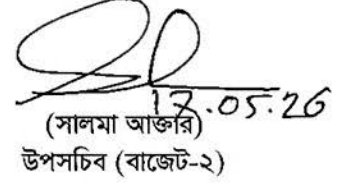 17.05.26
(সালমা আক্তার)
উপসচিব (বাজেট-২)